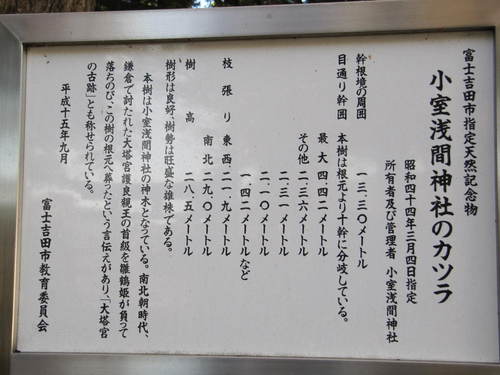 富士吉田市指定天然記念物
小室浅間神社のカツラ
昭和四十四年三月四日指定
所有者及び管理者 小室浅間神社
幹根境の周囲 一三.三〇メートル
目通り幹囲 本樹は根元より十幹に分岐している。
最大 四.四二メートル
その他 二.三六メートル
二.三一メートル
二.一〇メートル
一.四二メートルなど
枝張り 東西 二一.九メートル
南北 二九.〇メートル
樹高 二八.五メートル
樹形は良好、樹勢は旺盛な雄株である。
本樹は小室浅間神社の神木となっている。南北朝時代、
鎌倉で討たれた大塔宮護良親王の首級を雛鶴姫が負って
落ちのび、この樹の根元へ葬ったという言伝えがあり、「大塔宮
の古跡」とも称せられている。
平成十五年九月
富士吉田市教育委員会